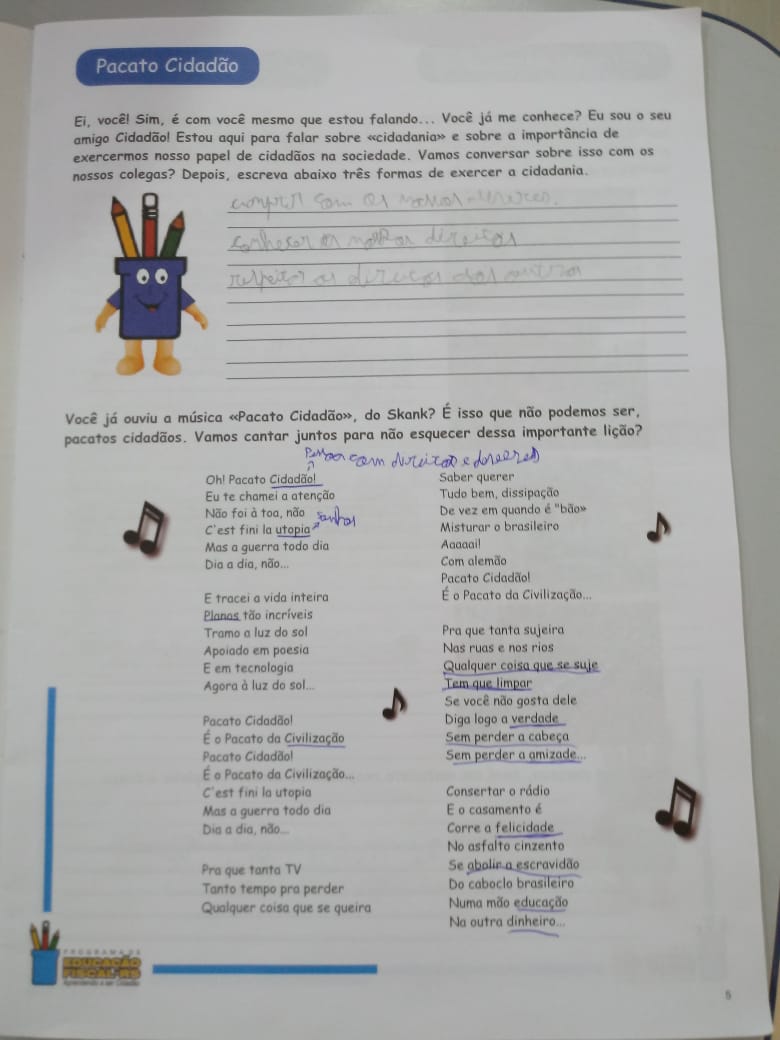 Pacato Cidadão
Ei, você! Sim, é com você mesmo que estou falando... Você já me conhece? Eu sou o seu
amigo Cidadão! Estou aqui para falar sobre «cidadania» e sobre a importância de
exercermos nosso papel de cidadãos na sociedade. Vamos conversar sobre isso com os
nossos colegas? Depois, escreva abaixo três formas de exercer a cidadania.
com os nossos
conhecer os nossos direitos
respeitar os direitos dos outros
Você já ouviu a música «Pacato Cidadão», do Skank? É isso que não podemos ser,
pacatos cidadãos. Vamos cantar juntos para não esquecer dessa importante lição?
Pessoa com direitos e deveres
Oh! Pacato Cidadão!
Eu te chamei a atenção
Não foi à toa, não
sonhos
C'est fini la utopia
Mas a guerra todo dia
Dia a dia, não...
E tracei a vida inteira
Planos tão incríveis
Tramo a luz do sol
Apoiado em poesia
E em tecnologia
Agora à luz do sol...
Pacato Cidadão!
É o Pacato da Civilização
Pacato Cidadão!
É o Pacato da Civilização...
C'est fini la utopia
Mas a guerra todo dia
Dia a dia, não...
Pra que tanta TV
Tanto tempo pra perder
Qualquer coisa que se queira
Saber querer
Tudo bem, dissipação
De vez em quando é "bão»
Misturar o brasileiro
Aaaaai!
Com alemão
Pacato Cidadão!
É o Pacato da Civilização...
Pra que tanta sujeira
Nas ruas e nos rios
Qualquer coisa que se suje
Tem que limpar
Se você não gosta dele
Diga logo a verdade
Sem perder a cabeça
Sem perder a amizade...
Consertar o rádio
E o casamento é
Corre a felicidade
No asfalto cinzento
Se abolir a escravidão
Do caboclo brasileiro
Numa mão educação
Na outra dinheiro...
PROGRAMA DE
EDUCAÇÃO
FISCAL-RS
Aprendendo a ser Cidadão
5